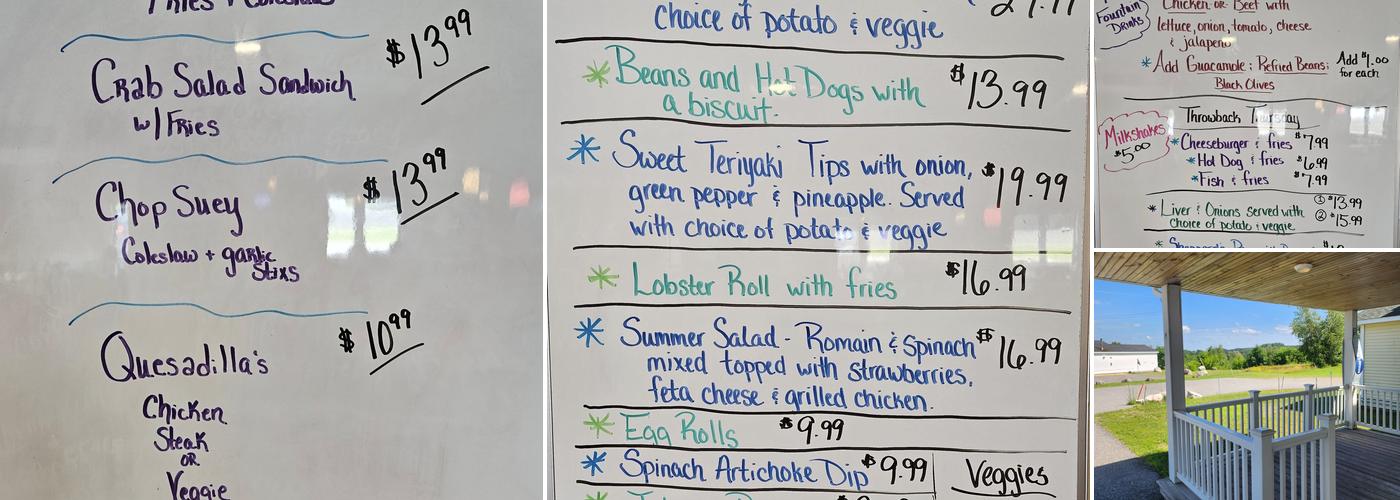 Fries + Coleslaw
$13.99
Crab Salad Sandwich
w/ Fries
$13.99
Chop Suey
Coleslaw + garlic
Stixs
$10.99
Quesadilla's
Chicken
Steak
OR
Veggie
choice of potato & veggie
* Beans and Hot Dogs with $13.99
a biscuit.
* Sweet Teriyaki Tips with onion, $19.99
green pepper & pineapple. Served
with choice of potato & veggie
* Lobster Roll with fries $16.99
* Summer Salad - Romain & Spinach $16.99
mixed topped with strawberries,
feta cheese & grilled chicken.
* Egg Rolls $9.99
* Spinach Artichoke Dip $9.99
Veggies
Fountain
Drinks
Chicken or Beef with
lettuce, onion, tomato, cheese
& jalapeno
* Add Guacamole; Refried Beans; Add $1.00
Black Olives for each
Milkshakes
$5.00
Throwback Thursday
* Cheeseburger & fries $7.99
* Hot Dog & fries $6.99
* Fish & fries $7.99
* Liver & Onions served with ① $13.99
choice of potato & veggie ② $15.99